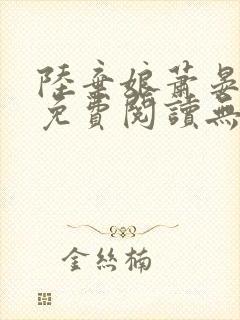 陸棄娘蕭晏
免費閱讀無
金絲楠